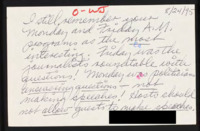 O-WS 8/24/95
I still remember your
Monday and Friday A.M.
programs as the most
interesting. Friday was the
journalists roundtable with
questions! Monday was politicians
answering questions – not
making speeches! Hosts should
not allow guests to make speeches.